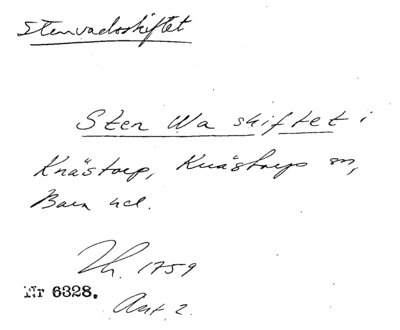 Stenvadsskiftet
Sten Wa skiftet i
Knästorp, Knästorps sn,
Bara hd.
Lh. 1759
Nr 6328.
Akt 2.